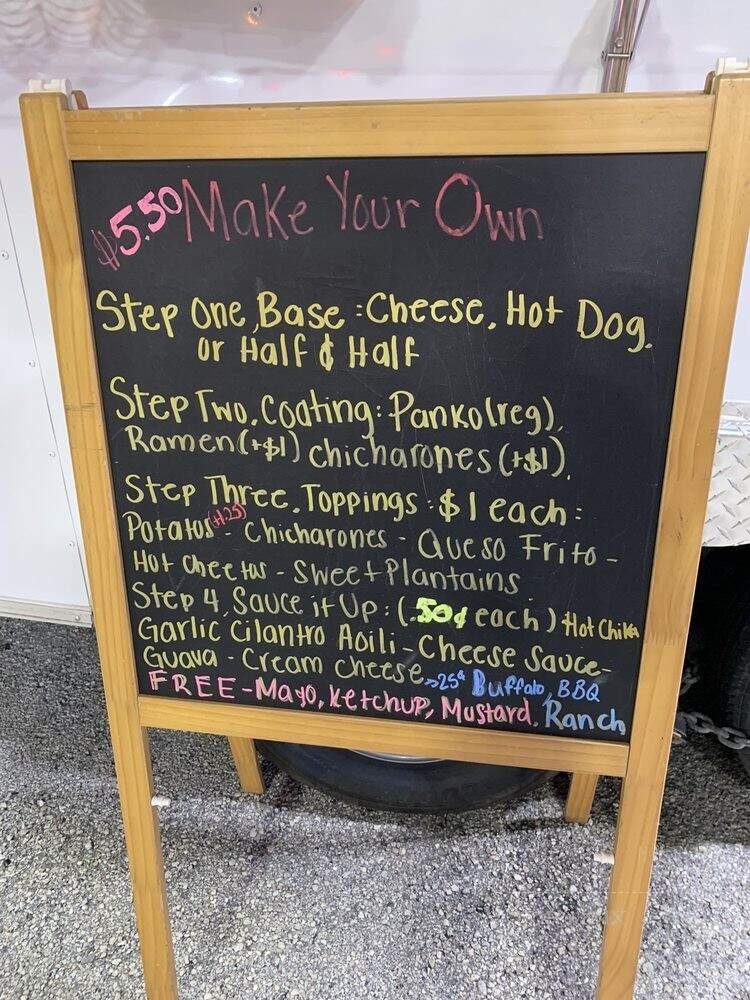 $5.50 Make Your Own
Step One, Base : Cheese, Hot Dog,
or Half & Half
Step Two, Coating: Panko(reg),
Ramen(+$1) chicharones (+$1),
Step Three, Toppings : $1 each :
Potatos(+1.25) - Chicharones - Queso Frito -
Hot Cheetos - Sweet Plantains
Step 4, Sauce it Up : (.50¢ each) Hot Chika
Garlic Cilantro Aoili - Cheese Sauce -
Guava - Cream cheese → 25¢ Buffalo, BBQ
FREE - Mayo, Ketchup, Mustard, Ranch